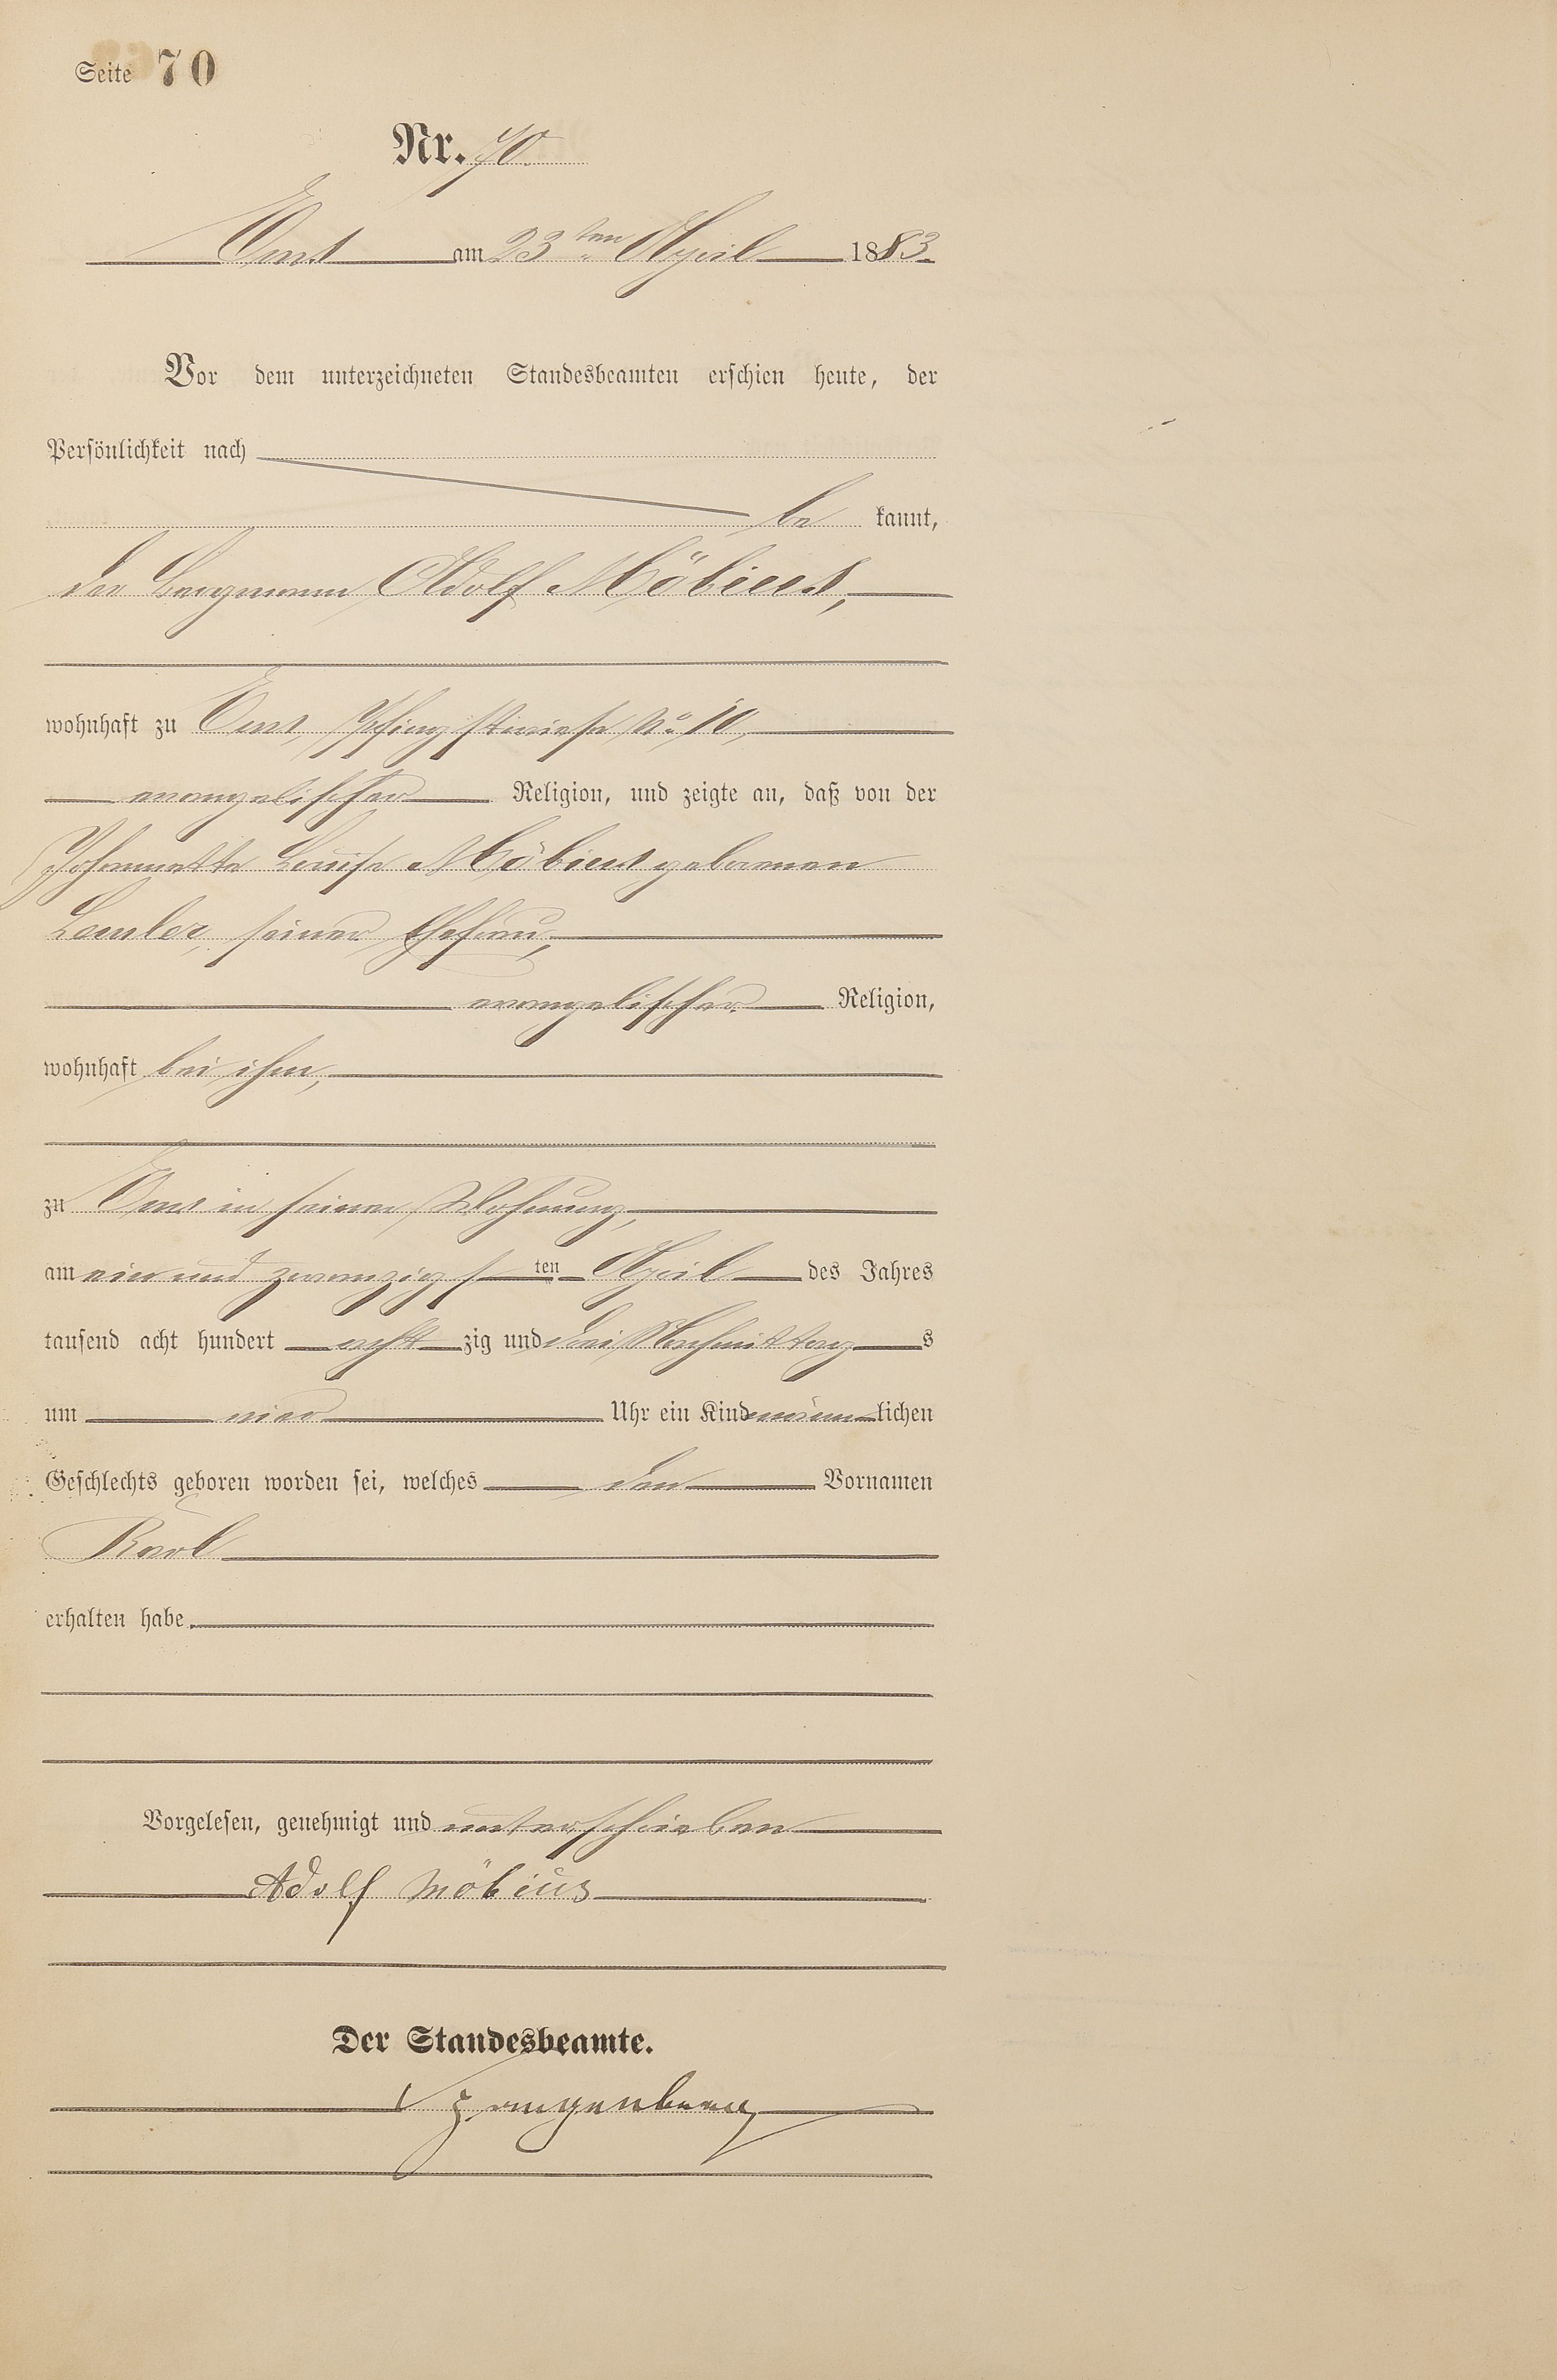 Seite 70
Nr. 70.
Ems am 23ten April 1883.
Vor dem unterzeichneten Standesbeamten erschien heute, der
Persönlichkeit nach
be kannt,
der Bergmann Adolf Möbius,
wohnhaft zu Ems, Pfingstwiese No 10,
evangelischer Religion, und zeigte an, daß von der
Johannette Louise Möbius geborenen
Lemler, seiner Ehefrau,
evangelischer Religion,
wohnhaft bei ihm,
zu Ems in seiner Wohnung,
am ein und zwanzigsten April des Jahres
tausend acht hundert acht zig und drei Nachmittags
um vier Uhr ein Kind männlichen
Geschlechts geboren worden sei, welches den Vornamen
Karl
erhalten habe.
Vorgelesen, genehmigt und unterschrieben
Adolf Möbius
Der Standesbeamte.
Spangenberg